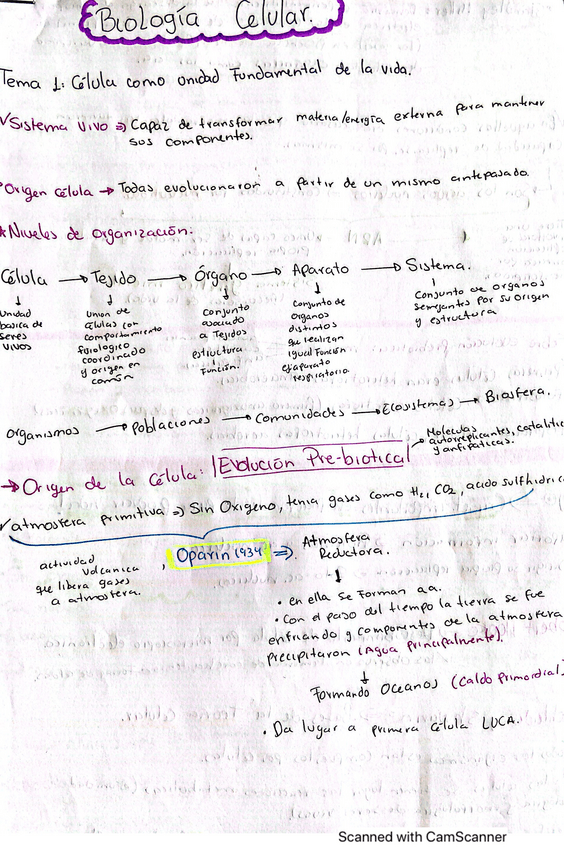 Biología Celular.
Tema 1: Célula como unidad Fundamental de la vida.
Sistema vivo => Capaz de transformar materia/energía externa para mantener
sus componentes.
Origen célula → Todas evolucionaron a partir de un mismo antepasado.
Niveles de organización:
Célula → Tejido → Órgano → Aparato → Sistema.
Unidad
basica de
seres
vivos
Union de
células con
comportamiento
fisiologico
coordinado
y origen en
común
Conjunto
asociado
a Tejidos
estructura
Función.
Conjunto de
organos
distintos
que realizan
igual Función
ej aparato
respiratorio
Conjunto de organos
semejantes por su origen
y estructura
organismos → poblaciones → comunidades → Ecosistemas → Biosfera.
→ Origen de la célula: Evolución Pre-biotica
Moleculas
autorreplicantes, catalitic
y anfipaticas.
atmosfera primitiva => Sin Oxigeno, tenia gases como H2, CO2, acido sulfhidric
actividad
volcanica
que libera gases
a atmosfera.
, Oparin 1934 =>
Atmosfera
Reductora.
• en ella se Forman aa.
• Con el paso del tiempo la tierra se fue
enfriando y componentes de la atmosfera
precipitaron (Agua principalmente).
Formando Oceanos (Caldo primordial)
• Da lugar a primera célula LUCA.
Scanned with CamScanner